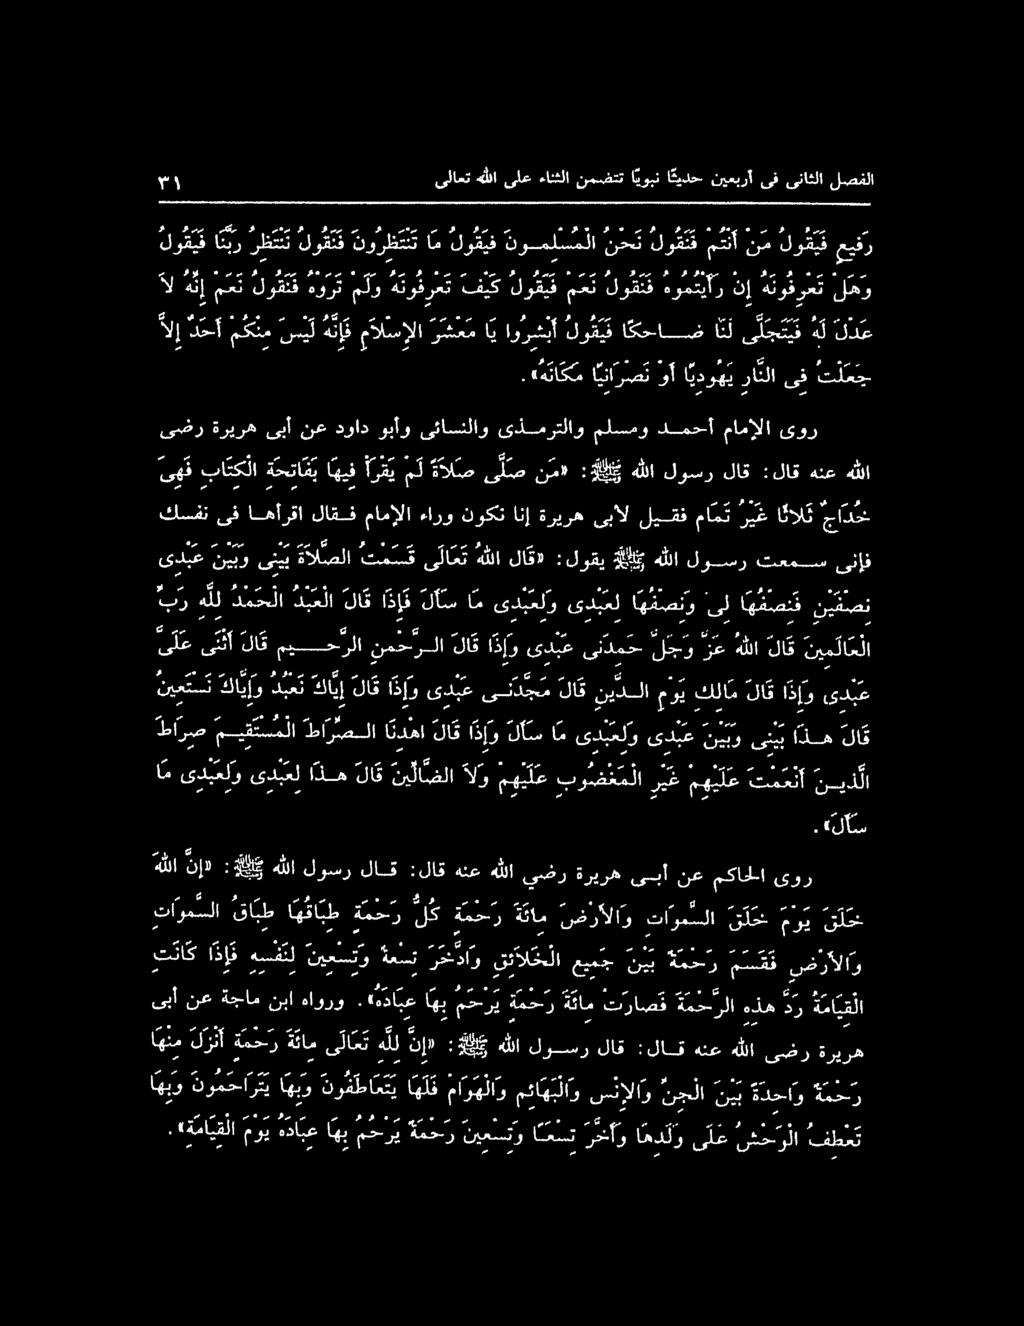 الفصل الثانى فى أربعين حديثًا نبويًا تتضمن الثناء على الله تعالى ٣١
رَفِيعٍ فَيَقُولُ مَنْ أَنْتُمْ فَنَقُولُ نَحْنُ الْمُسْلِمُونَ فَيَقُولُ مَا تَنْتَظِرُونَ فَنَقُولُ نَنْتَظِرُ رَبَّنَا فَيَقُولُ
وَهَلْ تَعْرِفُونَهُ إِنْ رَأَيْتُمُوهُ فَنَقُولُ نَعَمْ فَيَقُولُ كَيْفَ تَعْرِفُونَهُ وَلَمْ تَرَوْهُ فَنَقُولُ نَعَمْ إِنَّهُ لاَ
عَدْلَ لَهُ فَيَتَجَلَّى لَنَا ضَاحِكًا فَيَقُولُ أَبْشِرُوا يَا مَعْشَرَ الإِسْلاَمِ فَإِنَّهُ لَيْسَ مِنْكُمْ أَحَدٌ إِلاَّ
جَعَلْتُ فِى النَّارِ يَهُودِيًا أَوْ نَصْرَانِيًا مَكَانَهُ».
روى الإمام أحمد ومسلم والترمذى والنسائى وأبو داود عن أبى هريرة رضى
الله عنه قال: قال رسول الله ﷺ: «مَن صَلَّى صَلاَةً لَمْ يَقْرَأْ فِيهَا بِفَاتِحَةِ الْكِتَابِ فَهِىَ
خِدَاجٌ ثَلاثًا غَيْرُ تَمَامٍ فقيل لأبى هريرة إنا نكون وراء الإمام فقال اقرأها فى نفسك
فإنى سمعت رسول الله ﷺ يقول: «قَال اللهُ تَعَالَى قَسَمْتُ الصَّلاَةَ بَيْنِى وَبَيْنَ عَبْدِى
نِصْفَيْنِ فَنِصْفُهَا لِى وَنِصْفُهَا لِعَبْدِى وَلِعَبْدِى مَا سَأَلَ فَإِذَا قَالَ الْعَبْدُ الْحَمْدُ لِلَّهِ رَبِّ
الْعَالَمِينَ قَالَ اللهُ عَزَّ وَجَلَّ حَمِدَنِى عَبْدِى وَإِذَا قَالَ الرَّحْمنِ الرَّحِيمِ قَالَ أَثْنَى عَلَىَّ
عَبْدِى وَإِذَا قَالَ مَالِكِ يَوْمِ الدِّينِ قَالَ مَجَّدَنِى عَبْدِى وَإِذَا قَالَ إِيَّاكَ نَعْبُدُ وَإِيَّاكَ نَسْتَعِينُ
قَالَ هذَا بَيْنِى وَبَيْنَ عَبْدِى وَلِعَبْدِى مَا سَأَلَ وَإِذَا قَالَ اهْدِنَا الصِّرَاطَ الْمُسْتَقِيمَ صِرَاطَ
الَّذِينَ أَنْعَمْتَ عَلَيْهِمْ غَيْرِ الْمَغْضُوبِ عَلَيْهِمْ وَلاَ الضَّالِّينَ قَالَ هذَا لِعَبْدِى وَلِعَبْدِى مَا
سَأَلَ».
روى الحاكم عن أبى هريرة رضي الله عنه قال: قال رسول الله ﷺ: «إِنَّ اللهَ
خَلَقَ يَوْمَ خَلَقَ السَّموَاتِ وَالأَرْضَ مِائَةَ رَحْمَةٍ كُلُّ رَحْمَةٍ طِبَاقُهَا طِبَاقُ السَّموَاتِ
وَالأَرْضِ فَقَسَمَ رَحْمَةً بَيْنَ جَمِيعِ الْخَلاَئِقِ وَادَّخَرَ تِسْعَةً وَتِسْعِينَ لِنَفْسِهِ فَإِذَا كَانَتِ
الْقِيَامَةُ رَدَّ هذِهِ الرَّحْمَةَ فَصَارَتْ مِائَةَ رَحْمَةٍ يَرْحَمُ بِهَا عِبَادَهُ». ورواه ابن ماجة عن أبى
هريرة رضى الله عنه قال: قال رسول الله ﷺ: «إِنَّ لِلَّهِ تَعَالَى مِائَةَ رَحْمَةٍ أَنْزَلَ مِنْهَا
رَحْمَةً وَاحِدَةً بَيْنَ الْجِنِّ وَالإِنْسِ وَالْبَهَائِمِ وَالْهَوَامِّ فَلَهَا يَتَعَاطَفُونَ وَبِهَا يَتَرَاحَمُونَ وَبِهَا
تَعْطِفُ الْوَحْشُ عَلَى وَلَدِهَا وَأَخَّرَ تِسْعًا وَتِسْعِينَ رَحْمَةً يَرْحُمُ بِهَا عِبَادَهُ يَوْمَ الْقِيَامَةِ».